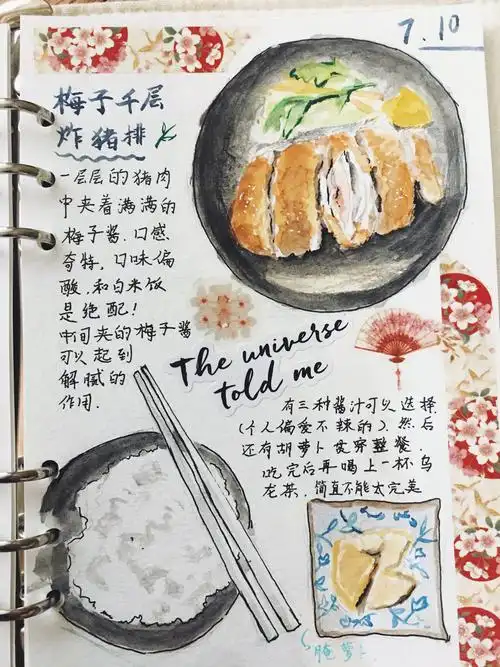 7.10
梅子千层
炸猪排
一层层的猪肉
中夹着满满的
梅子酱.口感
奇特,口味偏
酸,和白米饭
是绝配!
中间夹的梅子酱
可以起到
解腻的
作用.
The universe
told me
有三种酱汁可以选择
(个人偏爱不辣的).然后
还有胡萝卜贯穿整餐,
吃完后再喝上一杯乌
龙茶,简直不能太完美
腌萝卜